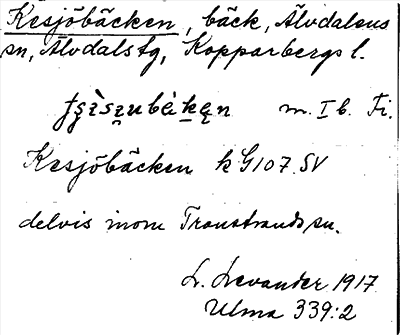 Kesjöbäcken, bäck, Älvdalens
sn, Älvdals tg, Kopparbergs l.
m. I b. Fi.
Kesjöbäcken k G107 SV
delvis inom Transtrands sn.
L. Levander 1917
Ulma 339:2